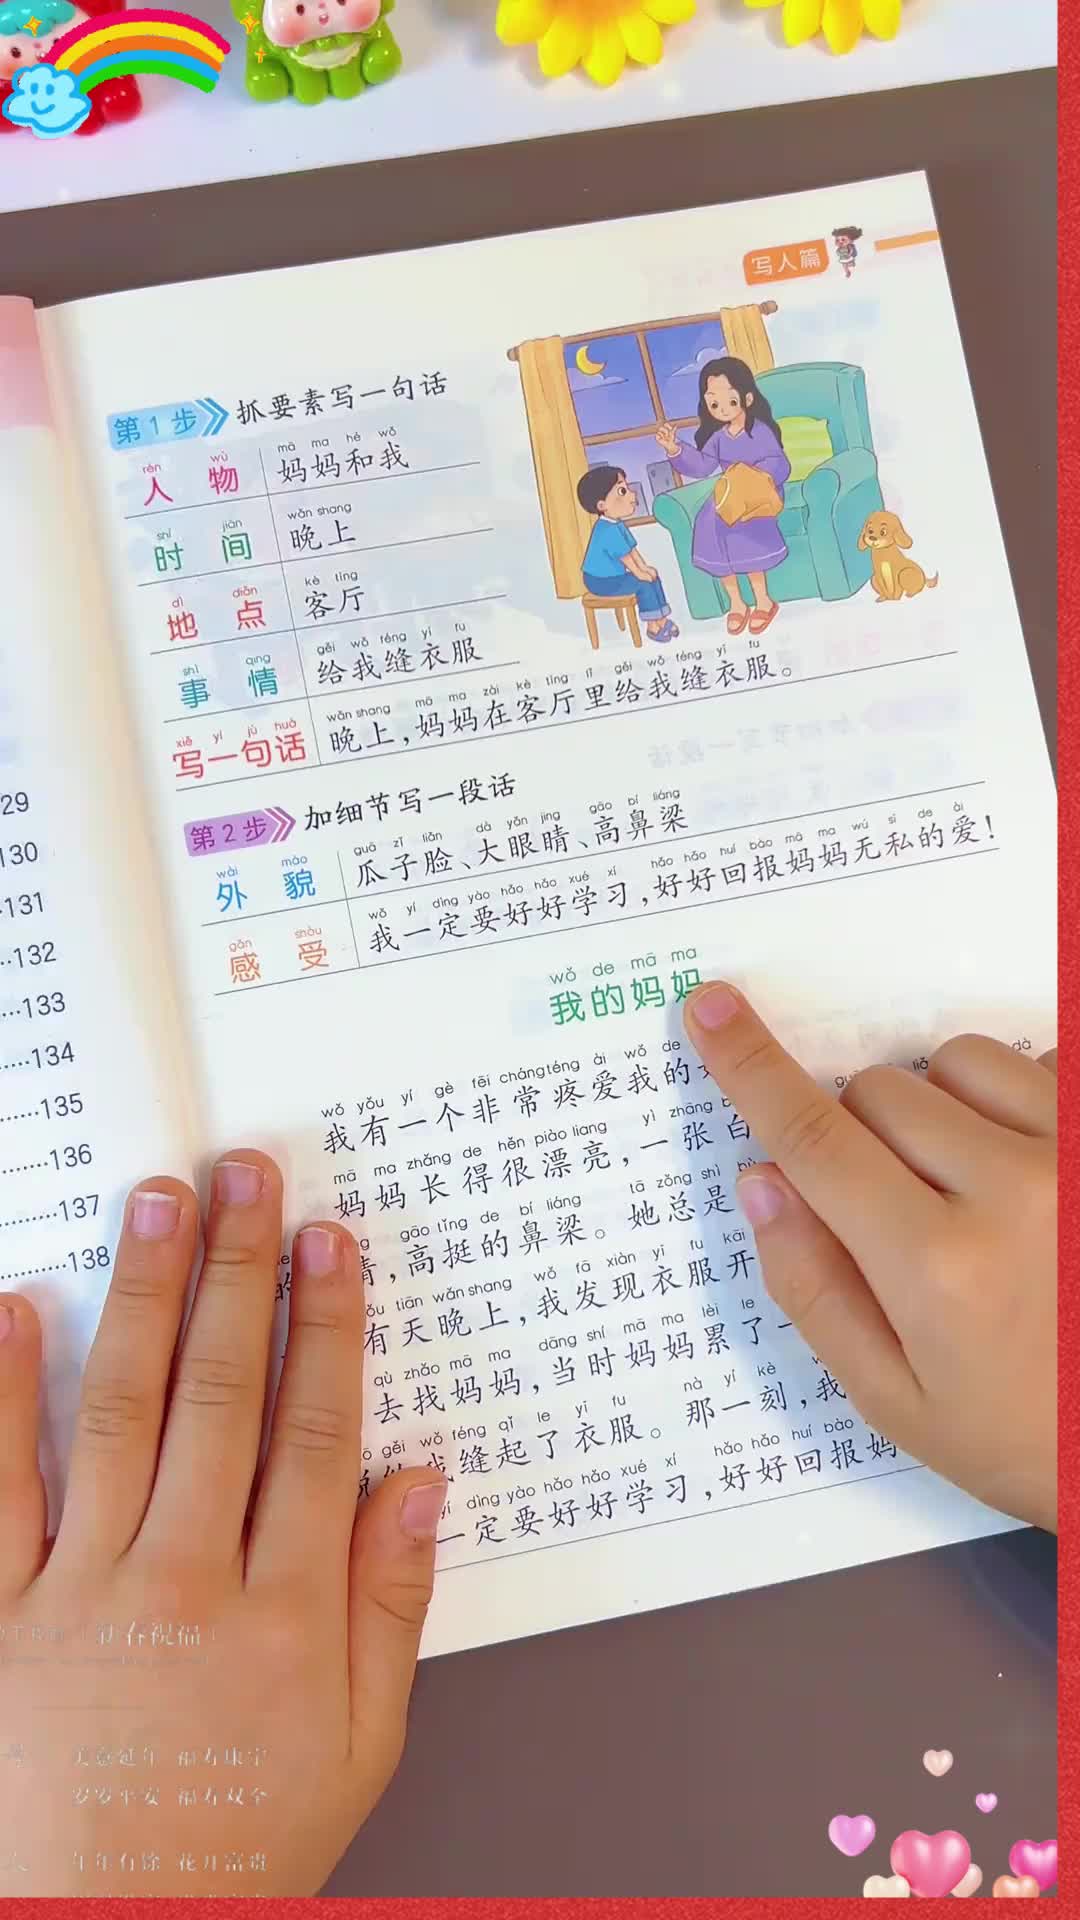 写人篇
第1步 抓要素写一句话
rén wù mā ma hé wǒ
人物 妈妈和我
shí jiān wǎn shang
时间 晚上
dì diǎn kè tīng
地点 客厅
shì qing gěi wǒ féng yī fu
事情 给我缝衣服
xiě yí jù huà wǎn shang mā ma zài kè tīng lǐ gěi wǒ féng yī fu
写一句话 晚上，妈妈在客厅里给我缝衣服。
第2步 加细节写一段话
wài mào guā zǐ liǎn dà yǎn jing gāo bí liáng
外貌 瓜子脸、大眼睛、高鼻梁
gǎn shòu wǒ yí dìng yào hǎo hǎo xué xí hǎo hǎo huí bào mā ma wú sī de ài
感受 我一定要好好学习，好好回报妈妈无私的爱！
wǒ de mā ma
我的妈妈
wǒ yǒu yí gè fēi cháng téng ài wǒ de
我有一个非常疼爱我的
mā ma zhǎng de hěn piào liang yì zhāng
妈妈长得很漂亮，一张白
gāo tǐng de bí liáng tā zǒng shì
睛，高挺的鼻梁。她总是
tiān wǎn shang wǒ fā xiàn yī fu kāi
有天晚上，我发现衣服开
qù zhǎo mā ma dāng shí mā ma lèi le
去找妈妈，当时妈妈累了一
gěi wǒ féng qǐ le yī fu nà yí kè
我缝起了衣服。那一刻，我
yí dìng yào hǎo hǎo xué xí hǎo hǎo huí bào
一定要好好学习，好好回报妈
29
130
131
132
133
134
135
136
137
138
新春祝福
美意延年 福寿康宁
岁岁平安 福寿双全
年年有馀 花开富贵